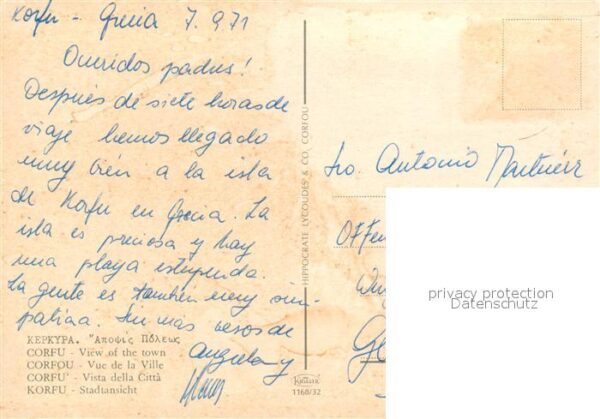 Korfu - Grecia 7.9.71
Queridos padres!
Después de siete horas de
viaje hemos llegado
muy bien a la isla
de Korfu en Grecia. La
isla es preciosa y hay
una playa estupenda.
La gente es tambien muy sim-
patica. Sin mas besos de
Angela y
ΚΕΡΚΥΡΑ. Ἄποψις Πόλεως
CORFU - View of the town
CORFOU - Vue de la Ville
CORFU' - Vista della Città
KORFU - Stadtansicht
HIPPOCRATE LYCOUDES & CO. CORFOU
1168/32
Antonio Martinez
Offen
privacy protection
Datenschutz